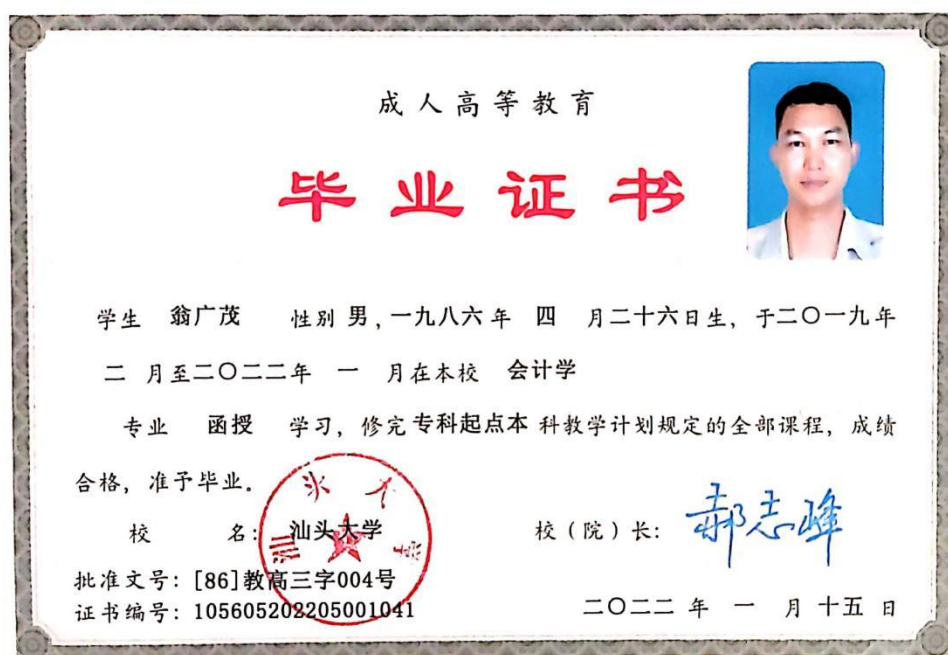 成人高等教育
毕业证书
学生 翁广茂 性别 男，一九八六年 四 月二十六日生，于二〇一九年
二 月至二〇二二年 一 月在本校 会计学
专业 函授 学习，修完 专科起点本 科教学计划规定的全部课程，成绩
合格，准予毕业。
校 名：汕头大学
校（院）长：郝志峰
批准文号：[86]教高三字004号
证书编号：105605202205001041
二〇二二 年 一 月 十五 日
汕头大学